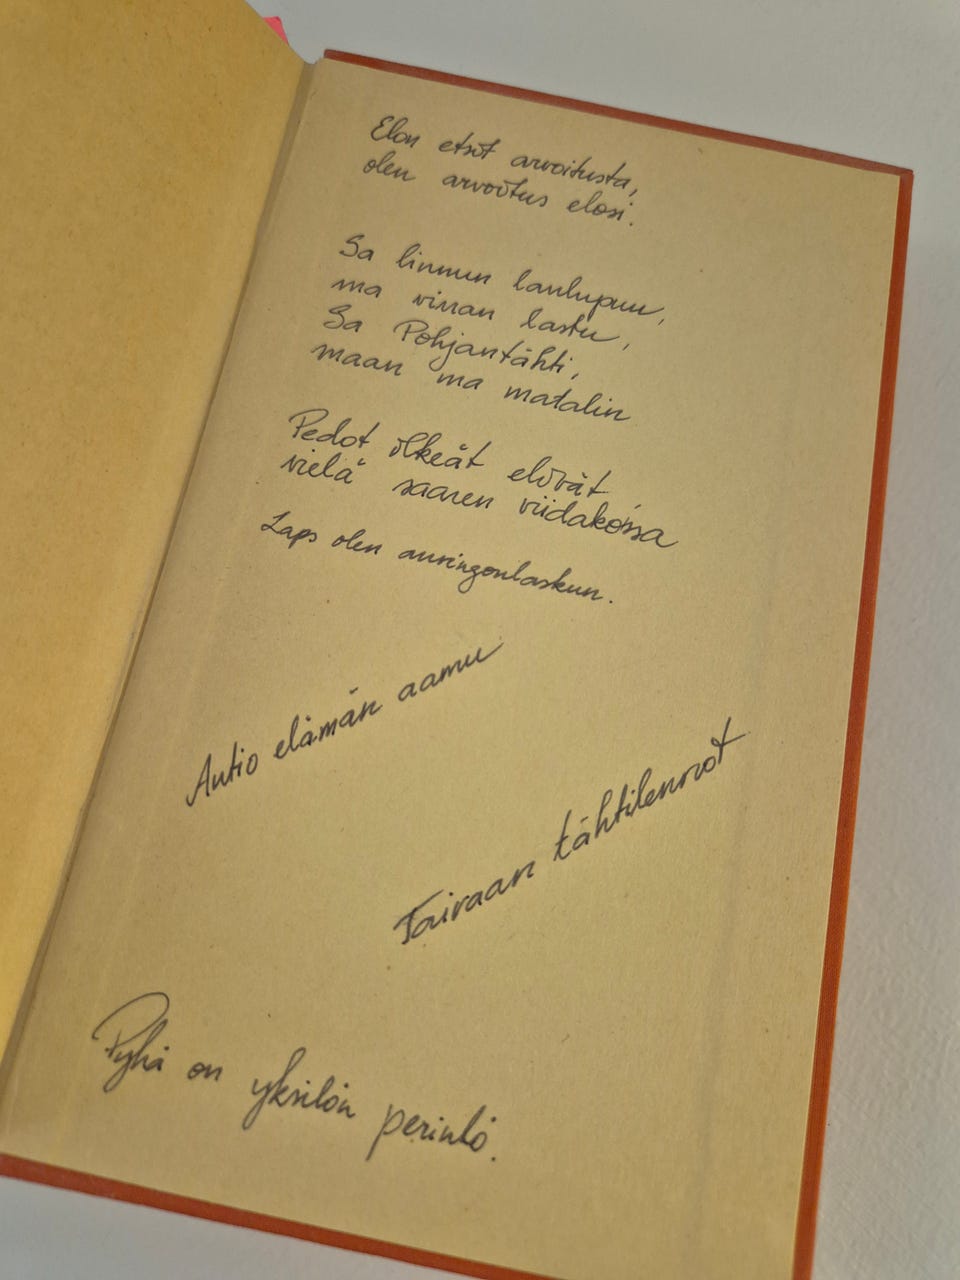 Elon etsit arvoitusta,
olen arvoitus elosi.
Sa linnun laulupuu,
ma virran lastu,
Sa Pohjantähti,
maan ma matalin
Pedot ilkeät elävät
vielä saaren viidakoissa
Laps olen auringonlaskun.
Autio elämän aamu
Taivaan tähtilennot
Pyhä on yksilön perintö.